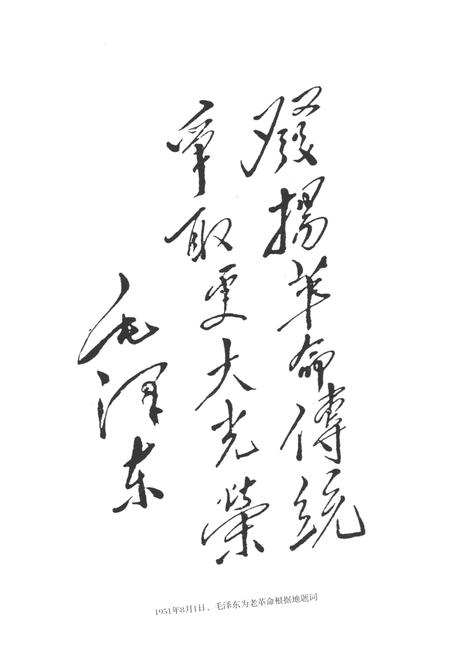 發揚革命傳統
爭取更大光榮
毛泽东
1951年8月1日，毛泽东为老革命根据地题词